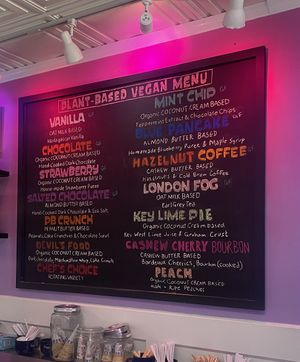 PLANT-BASED VEGAN MENU
VANILLA
OAT MILK BASED
Madagascar Vanilla
CHOCOLATE
Organic COCONUT CREAM BASED
Hand-Cooked Dark Chocolate
STRAWBERRY
Organic COCONUT CREAM BASED
House-made Strawberry Puree
SALTED CHOCOLATE
ALMOND BUTTER BASED
Hand-Cooked Dark Chocolate & Sea Salt
PB CRUNCH
PEANUT BUTTER BASED
Peanuts, Cake Crunchies & Chocolate Swirl
DEVIL'S FOOD
Organic COCONUT CREAM BASED
CHEF'S CHOICE
ROTATING VARIETY
MINT CHIP
Organic COCONUT CREAM BASED
Peppermint Extract & Chocolate Chips
BLUE PANCAKE
ALMOND BUTTER BASED
Homemade Blueberry Puree & Maple Syrup
HAZELNUT COFFEE
CASHEW BUTTER BASED
Hazelnuts & Cold Brew Coffee
LONDON FOG
OAT MILK BASED
Earl Grey Tea
KEY LIME PIE
Organic Coconut Cream Based
Key West Lime Juice & Graham Crust
CASHEW CHERRY BOURBON
CASHEW BUTTER BASED
Bordeaux Cherries, Bourbon (cooked)
PEACH
Organic COCONUT CREAM BASED
Ripe Peaches